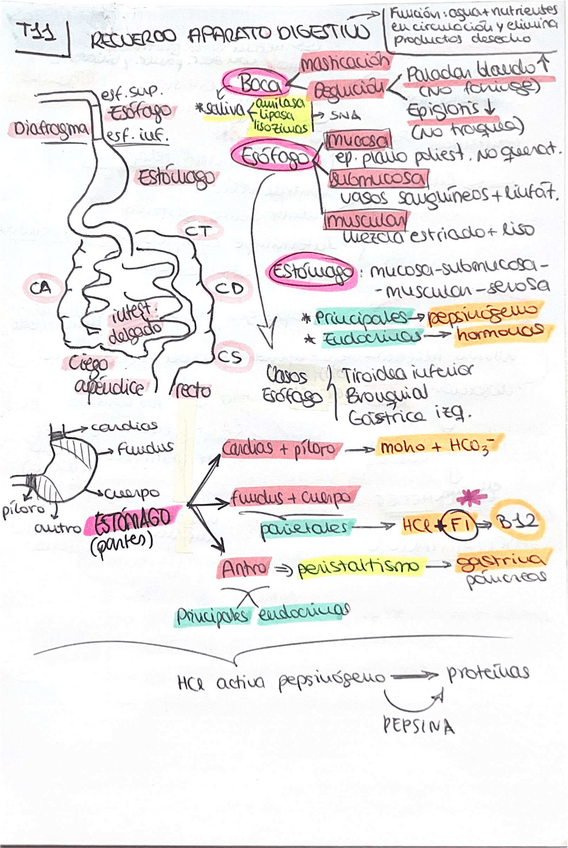 T11
RECUERDO APARATO DIGESTIVO
Función: agua + nutrientes
en circulación y elimina
productos desecho
esf. sup.
Esófago
Diafragma
esf. inf.
Estómago
CT
CA
CD
intest.
delgado
CS
Ciego
apéndice
recto
Boca
masticación
Deglución
Paladar blando ↑
(No fonigue)
Epiglotis ↓
(No traquea)
*saliva
amilasa
lipasa
lisozimas
→ SNA
Esófago
mucosa
ep. plano poliest. No querat.
submucosa
vasos sanguíneos + linfát.
muscular
mezcla estriado + liso
Estómago: mucosa-submucosa-
-muscular-serosa
* Principales → pepsinógeno
* Endocrinas → hormonas
Vasos
Esófago
Tiroidea inferior
Bronquial
Gástrica izq.
cardias
fundus
cuerpo
píloro
antro
ESTÓMAGO
(partes)
Cardias + píloro → moho + HCO₃⁻
fundus + cuerpo
parietales → HCl + FI → B-12
Antro ⇒ peristaltismo → gastrina
páncreas
Principales endocrinas
HCl activa pepsinógeno → proteínas
PEPSINA